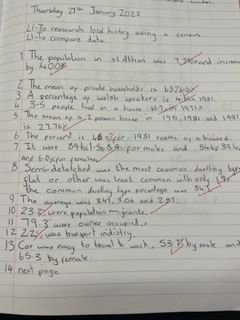 Thursday 27th January 2022
LI-To research local history using a census
LI-To compare data
1 The population in St Athan was 7,3 and increased
by 400%
2 The mean of private households is 6526
3 A percentage of welsh speakers is in 1981.
4 3-5 people lived in a house in 1981
5 The mean of a 2 person house in 1971, 1981 and 1991
is 27.76%
6 The percent is for 1981 rooms of a house
7 It was 59.6% for males and
and 6.0% for females
8 Semi-detatched was the most common dwelling type
flat or other was least common with only 1.9%
the common dwelling type percentage was 34.1
9 The average was 3.41, 3.06 and 2.91.
10 23.2% were population migrants.
11 79.3 were owner occupied.
12 22% was transport indistry.
13 Car was easy to travel to work, 53.7% by male and
65.3 by female.
14 next page